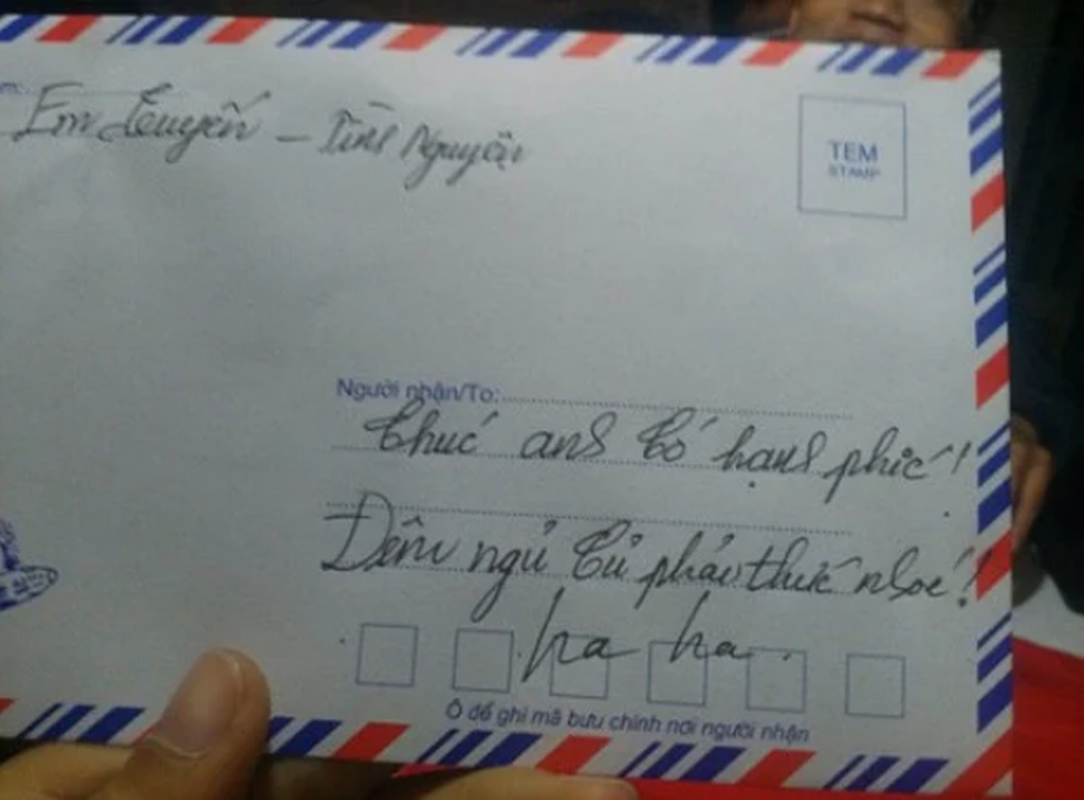 Em Tuyến – Tình Nguyện
TEM
STAMP
Người nhận/To:
Chúc anh Tố hạnh phúc!
Đêm ngủ phải thức nhoé!
ha ha.
Ô để ghi mã bưu chính nơi người nhận